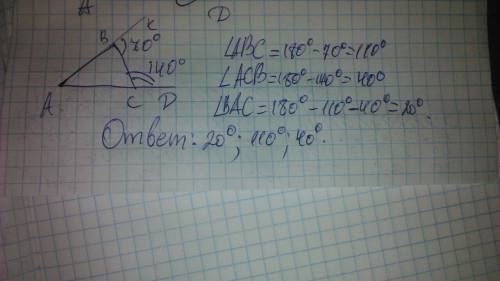 A
D
K
B 70°
140°
A C D
∠ABC = 180° - 70° = 110°
∠ACB = 180° - 140° = 40°
∠BAC = 180° - 110° - 40° = 20°.
Ответ: 20°; 110°; 40°.